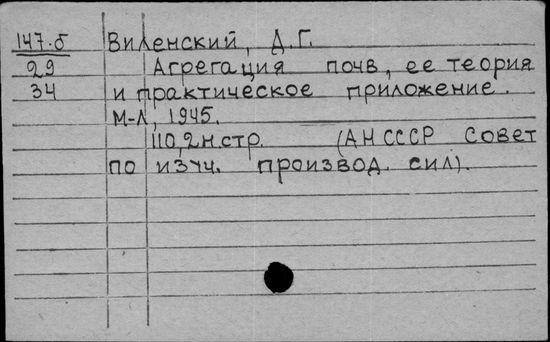 147.б Виленский, Д.Г.
29 Агрегация почв, ее теория
34 и практическое приложение.
М-Л, 1945.
110,2н.стр. (АН СССР Совет
по изуч. производ. сил).